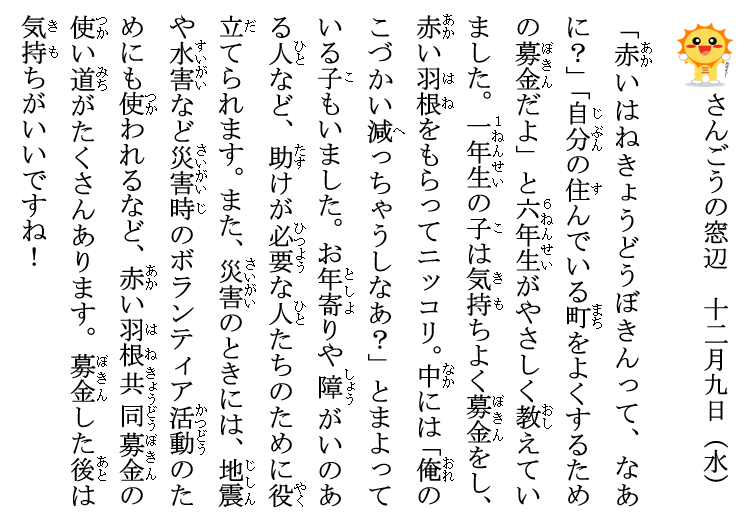 さんごうの窓辺　十二月九日（水）
「赤いはねきょうどうぼきんって、なあ
に？」「自分の住んでいる町をよくするため
の募金だよ」と六年生がやさしく教えてい
ました。一年生の子は気持ちよく募金をし、
赤い羽根をもらってニッコリ。中には「俺の
こづかい減っちゃうしなあ？」とまよって
いる子もいました。お年寄りや障がいのあ
る人など、助けが必要な人たちのために役
立てられます。また、災害のときには、地震
や水害など災害時のボランティア活動のた
めにも使われるなど、赤い羽根共同募金の
使い道がたくさんあります。募金した後は
気持ちがいいですね！